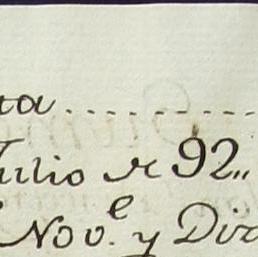 ta
Julio de 92,,
Nov.e y Dic